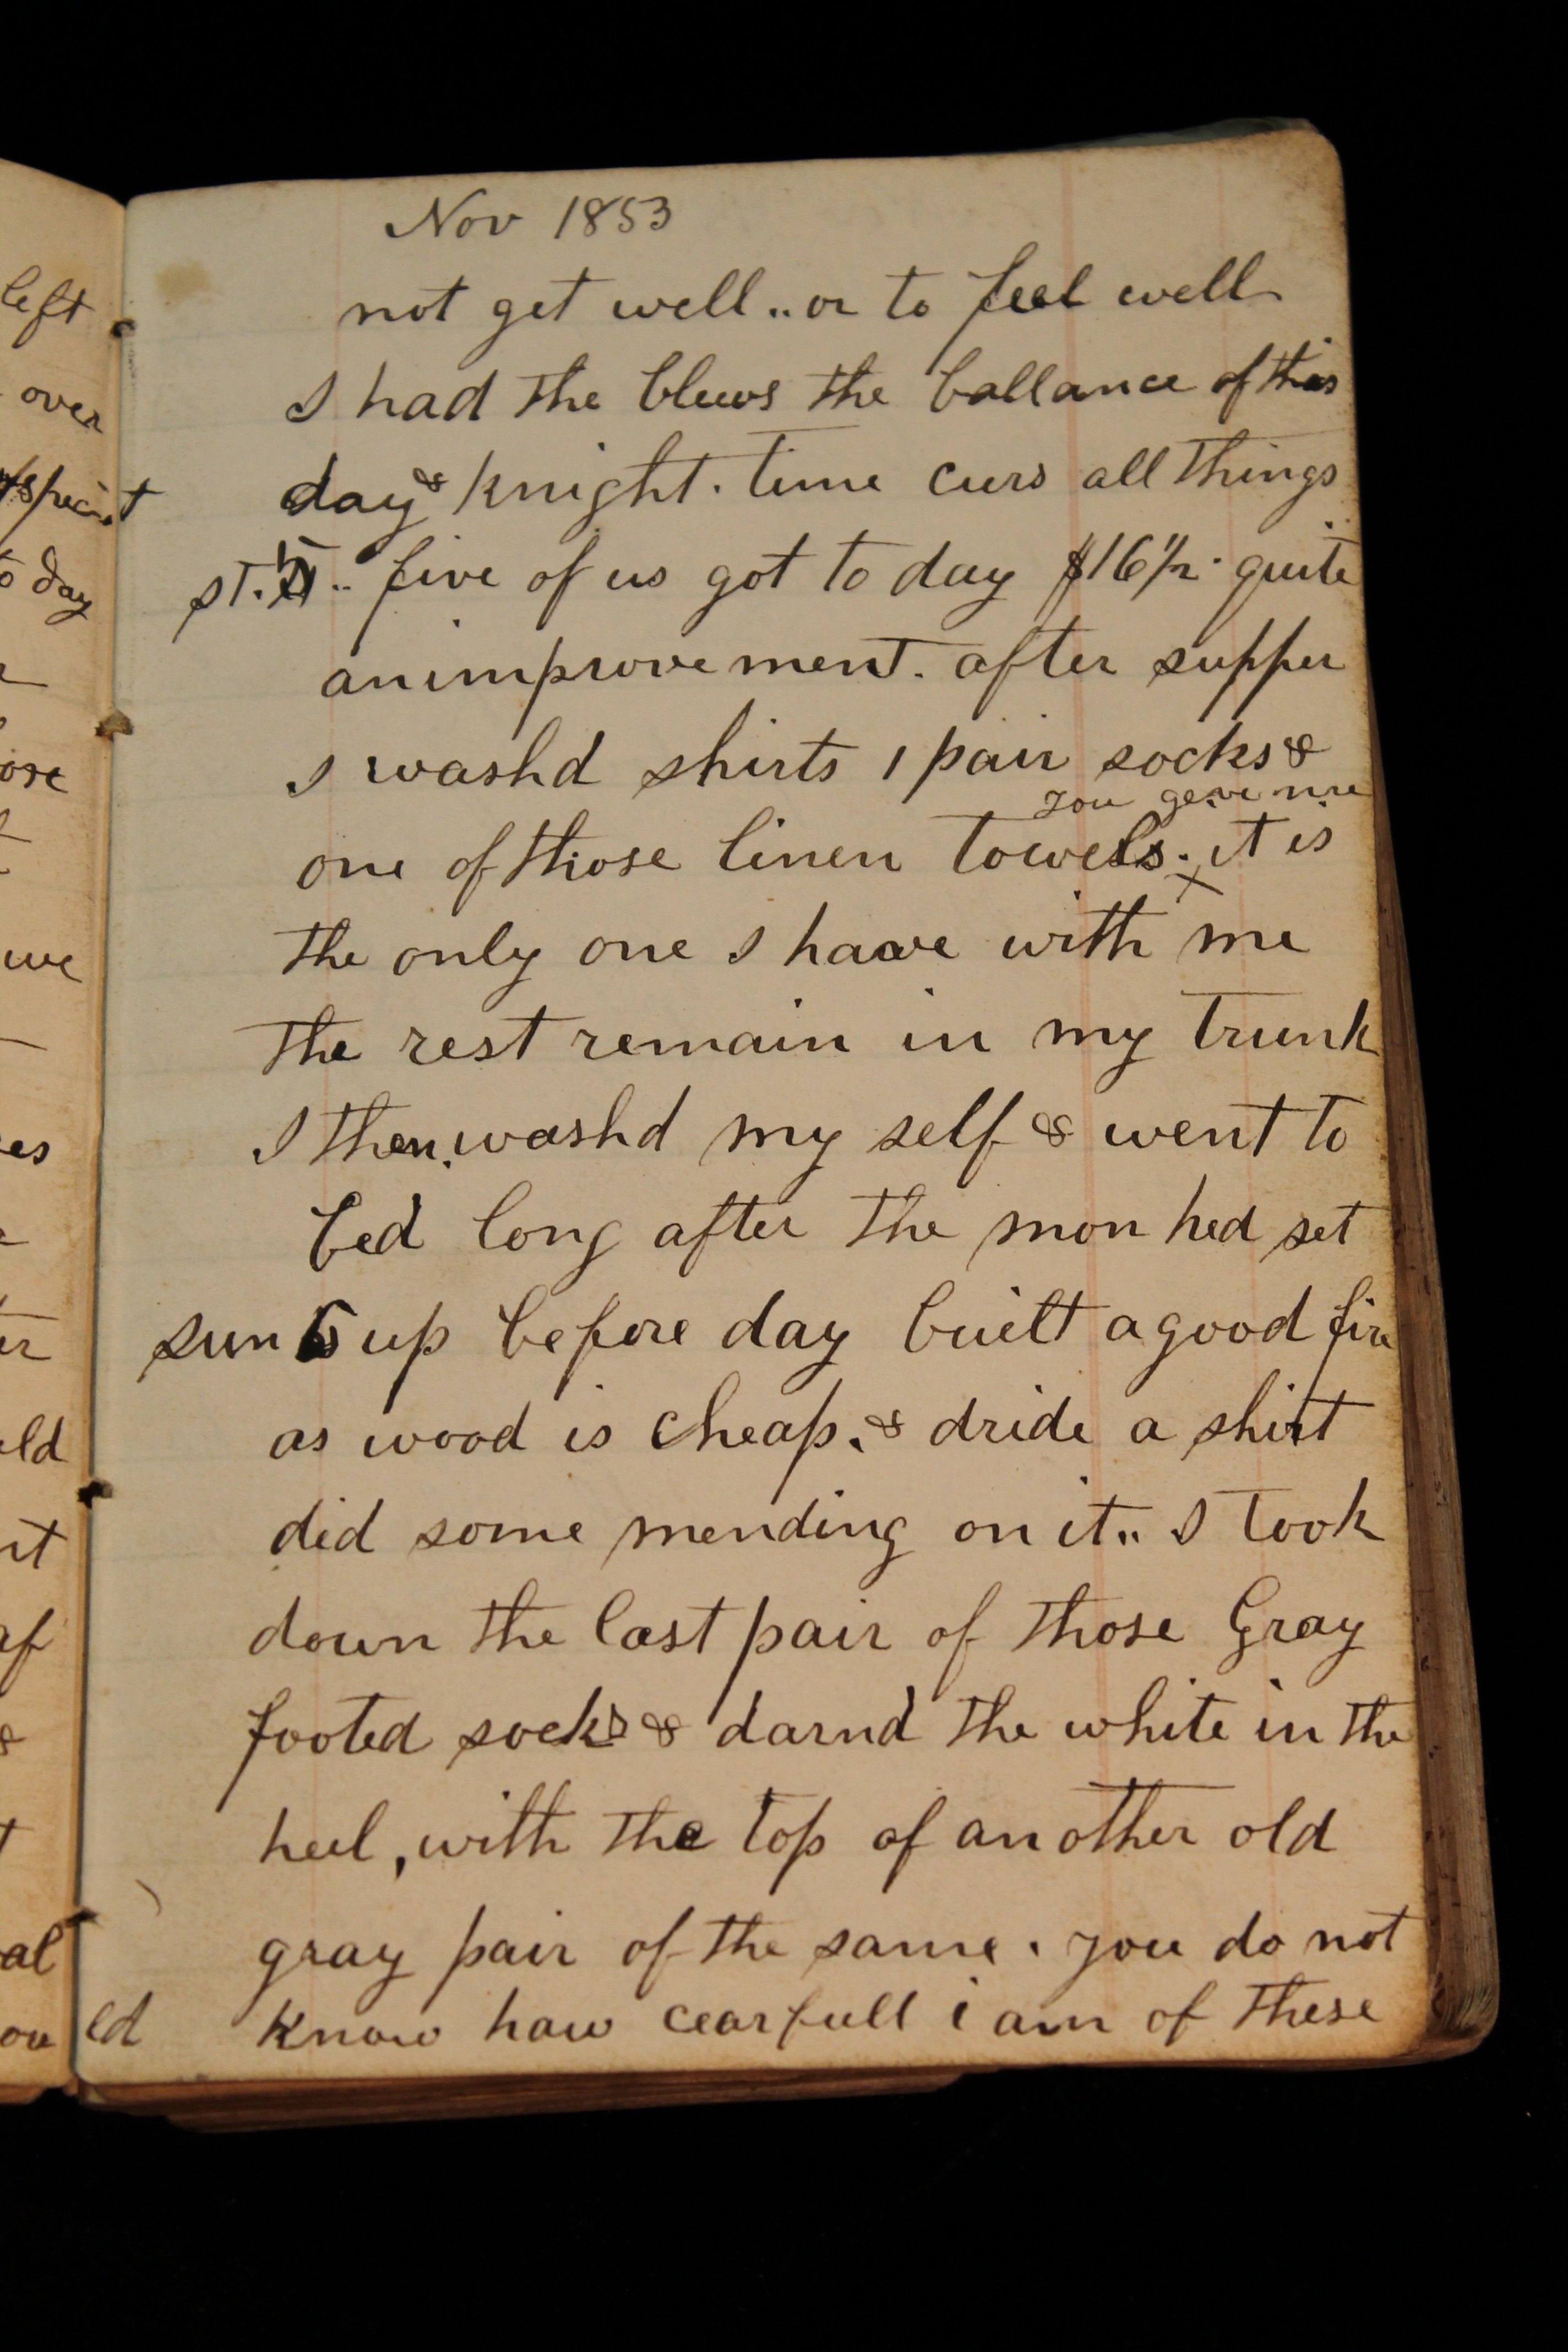 Nov 1853
not get well.. or to feel well
I had the bluws the ballance of this
day & knight. time curs all things
st. 5.. five of us got to day $16 1/2. quite
an improvement. after supper
I washd shirts 1 pair socks &
you geve me
one of those linen towels. it is
the only one I have with me
the rest remain in my trunk
I then washd my self & went to
bed long after the mon hed set
sun 6 up before day built a good fire
as wood is cheap. & dride a shirt
did some mending on it.. I took
down the last pair of those Gray
footed socks & darnd the white in the
heel, with the top of another old
gray pair of the same. you do not
know haw cearfull i am of these
left
over
to day
ose
we
es
er
eld
nt
af
&
al
ou ld